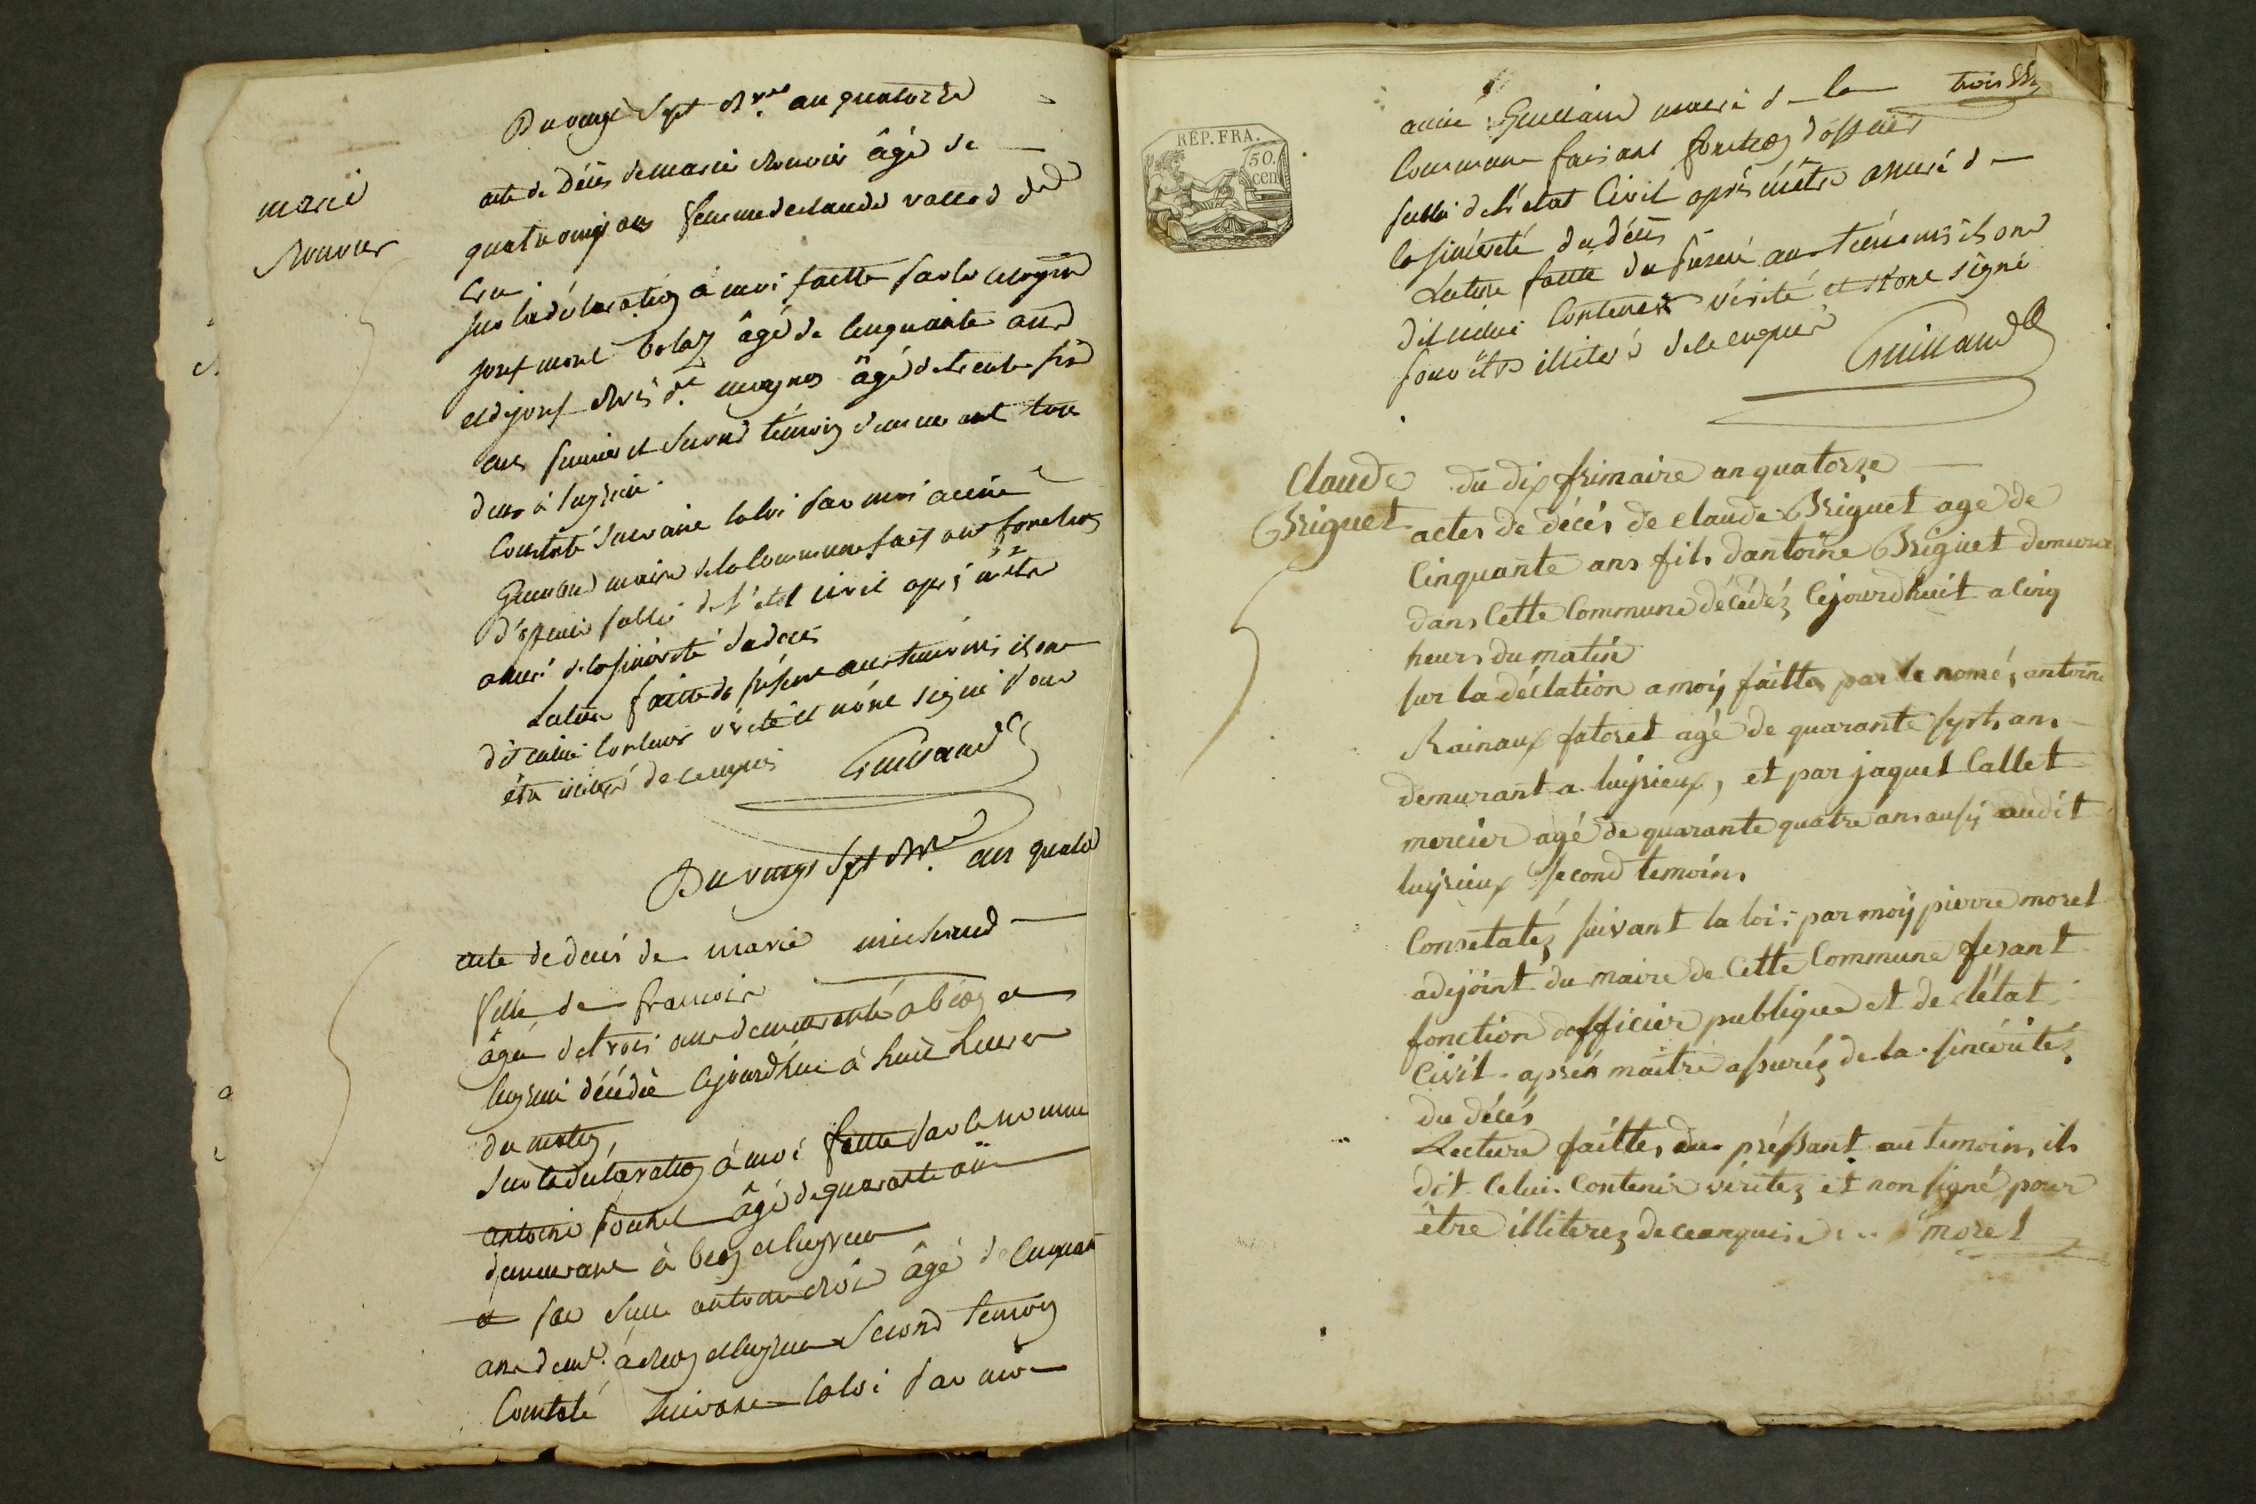 Du vingt sept br.re an quatorze
marie
acte de Décès de marie âgé de
quatrevingt ans femme declaude vallod
sur la déclaration à moi faitte par le citoyen
josef morel âgé de cinquante ans
et de josef âgé de trente six
ans premier et second témoin demeurant tous
deux à luyrieu
Constaté suivant la loi par moi aimé
Guilland maire de la Commune faisant fonction
d'officier public de l'etat civil après m'être
assuré de la sincérité du décès
Lecture faitte du présent aux témoins ils ont
dit icelui contenir vérité et n'ont signé pour
être illiteré de ce enquis Guilland
Du vingt sept br.re an quator
acte de décès de marie michaud
fille de francois
âgée de trois ans demeurante à béon et
luyrieu décédée cejourdhui à huit heures
du matin,
sur la déclaration à moi faitte par le nommé
antoine âgé de quarante ans
demeurant à beon et luyrieu
et par antoine âgé de cinquante
ans demt. à beon et luyrieu second temoin
Constaté suivant la loi par moi
trois
RÉP. FRA.
50.
cen
aimé Guilland maire de la
Commune faisant fonction d'officier
public de l'état Civil après m'être assuré de
la sincérité du décès
Lecture faitte du présent aux témoins ils ont
dit icelui Contenir vérité et n'ont signé
pour être illiteré de ce enquis
Guilland
Claude
Briguet
du dix frimaire an quatorze
actes de décès de claude Briguet age de
Cinquante ans fils dantoine Briguet demura
dans Cette Commune décédéz Cejourdhuit a Cinq
heurs du matin
sur la déclation a moÿ faittes par le nomé, antoine
Rainaux fatoret agé de quarante sept ans
demurant a luyrieux, et par jaquet Callet
mercier agé de quarante quatre ans ausÿ audit
luyrieux second temoins
Consetatéz suivant la loi par moÿ pierre morel
adejoint du maire de Cette Commune fesant
fonction dofficier publique et de létat
Civil aprés maitre assuréz de la sincéritéz
du décés
Lecture faittes du préssant au temoins ils
dit Celui Contenir véritez et non signé pour
être illiterez de ceanquise morel